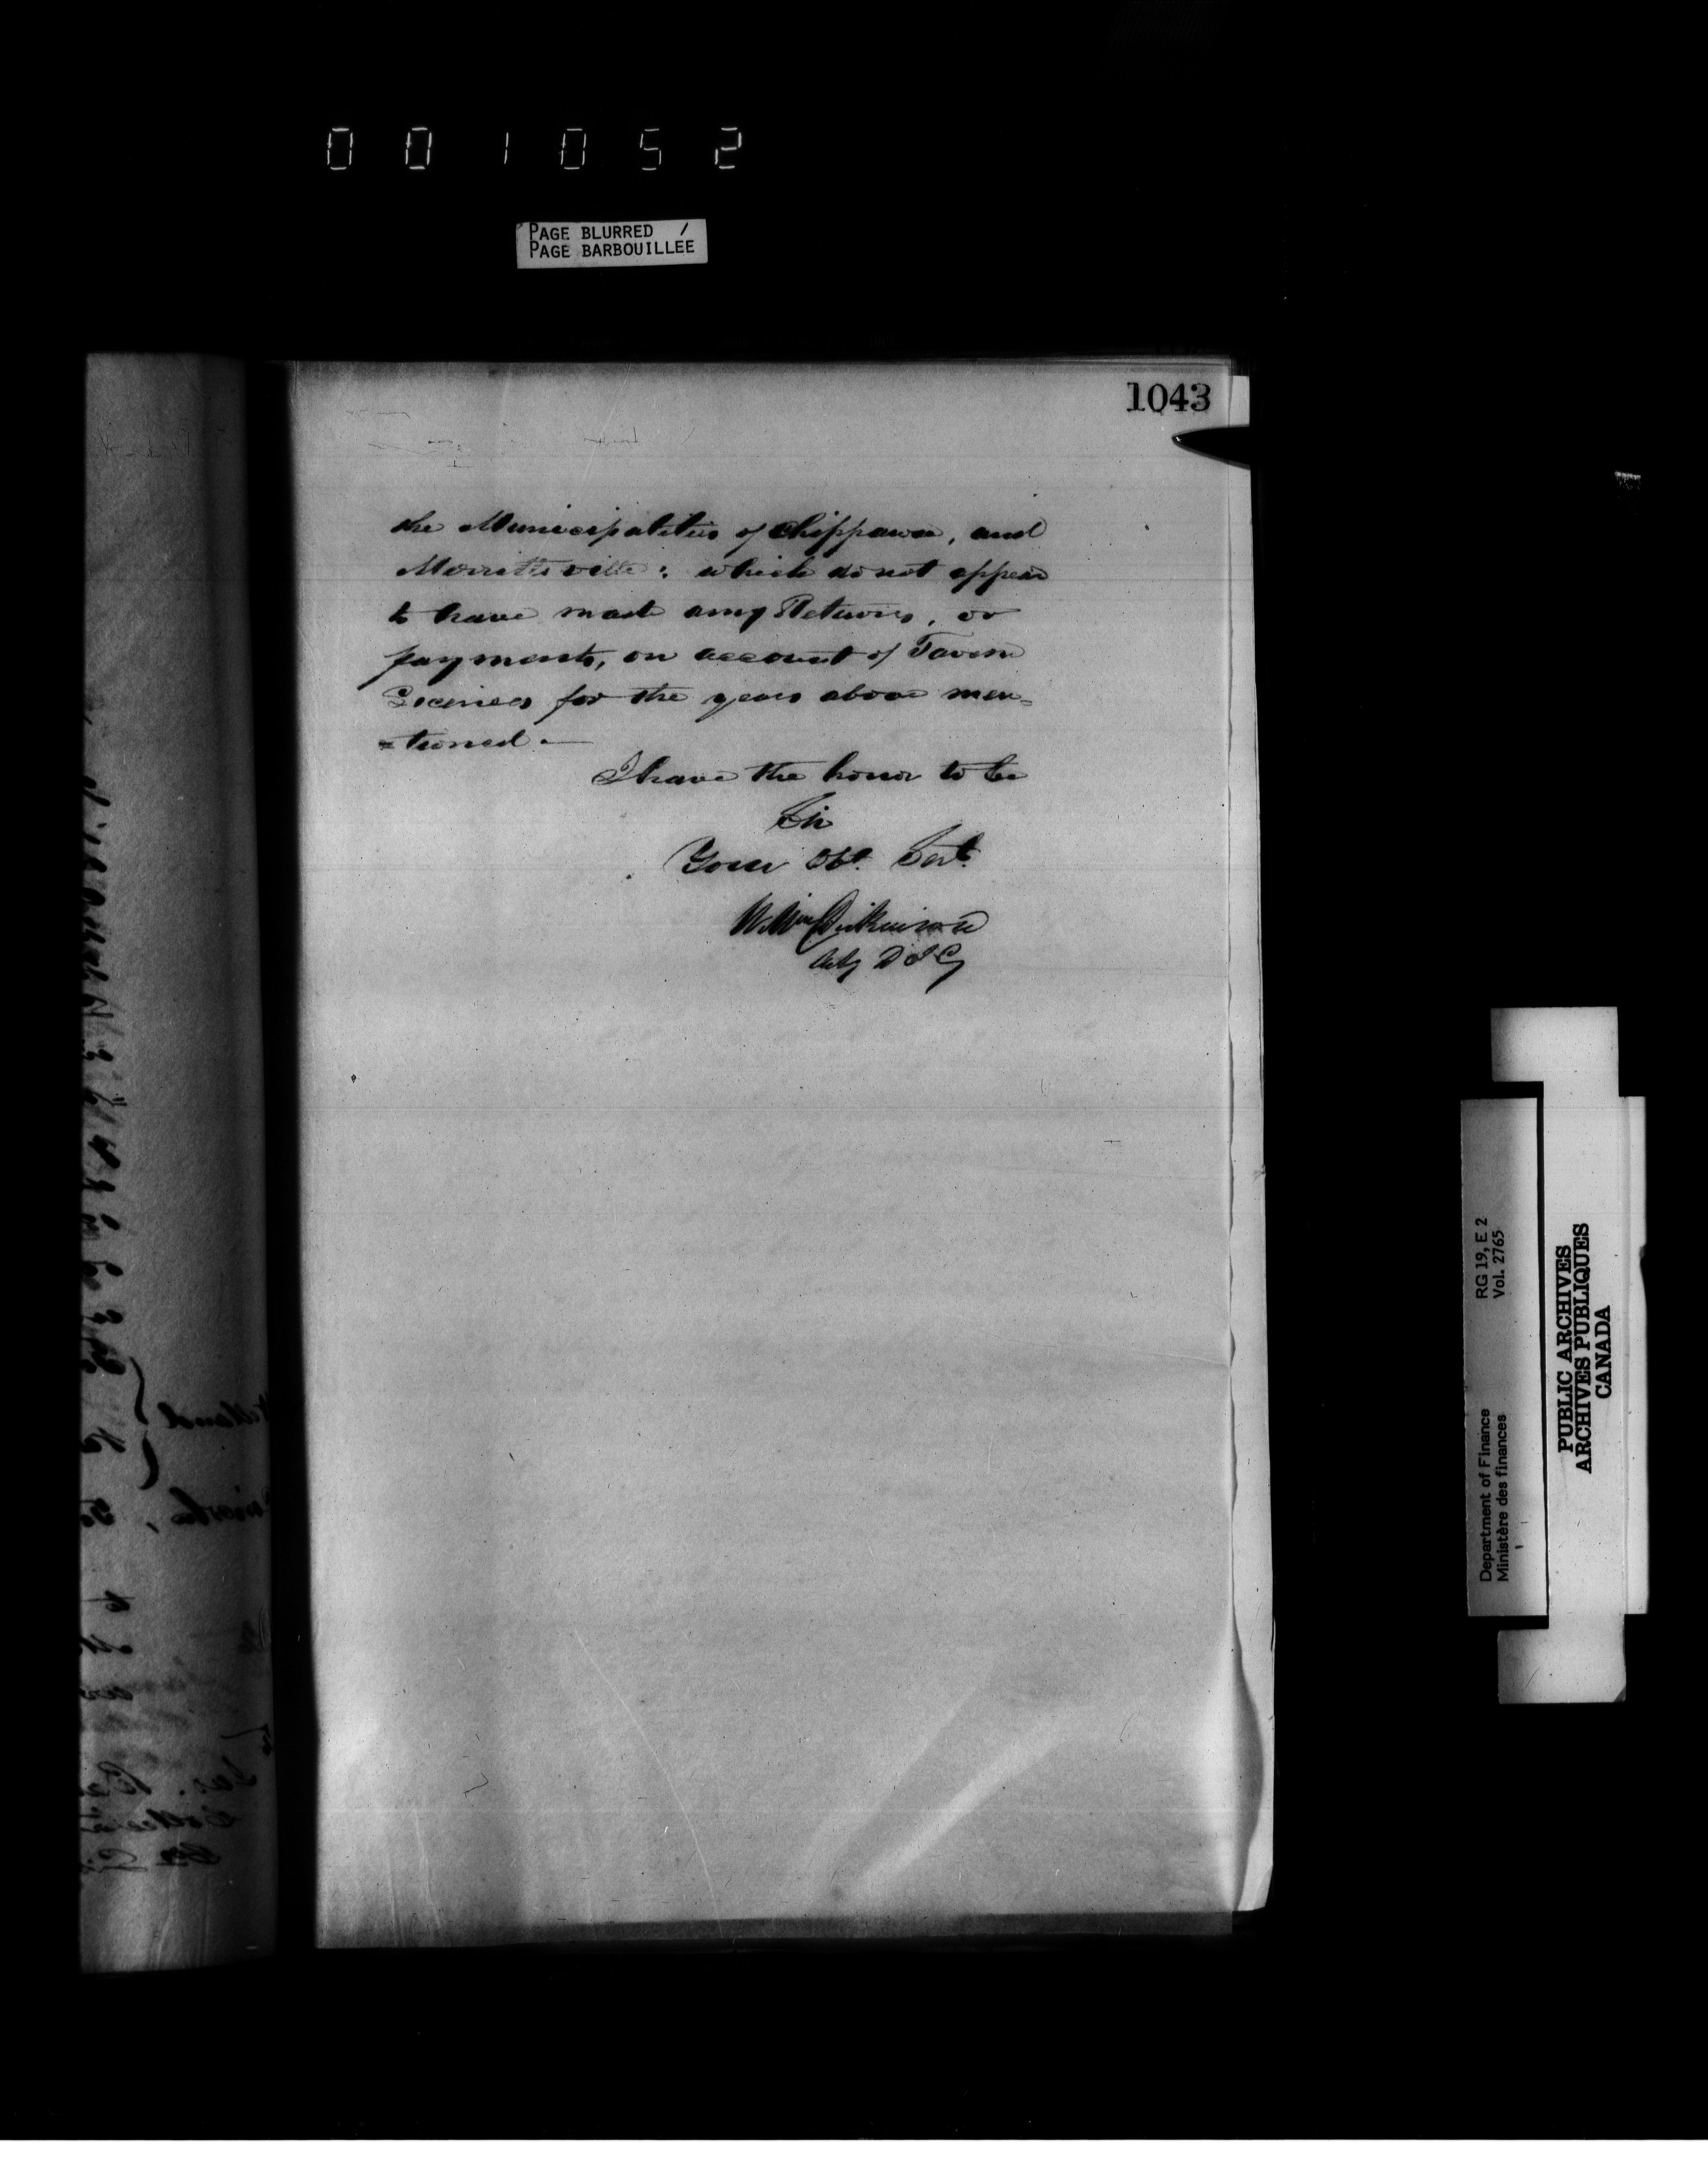 001052
PAGE BLURRED /
PAGE BARBOUILLEE
1043
the Municipalities of Chippawa, and
Merrittsville: which do not appear
to have made any Returns, or
payments, on account of Tavern
Licenses for the years above men=
=tioned.—
I have the honor to be
Sir
Your Obt. Servt.
Dickinson
RG 19, E 2
Vol. 2765
Department of Finance
Ministère des finances
PUBLIC ARCHIVES
ARCHIVES PUBLIQUES
CANADA